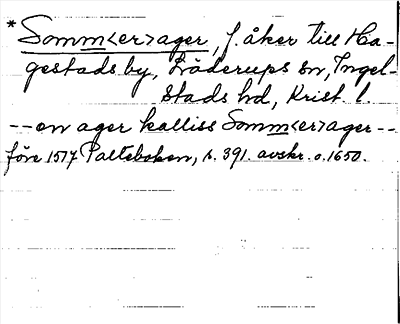 *Somm<er>ager, f. åker till Ha-
gestads by, Löderups sn, Ingel-
stads hd, Krist. l.
--en ager kalliss Somm<er>ager--
före 1577 Palteboken, s. 391. avskr. o. 1650.